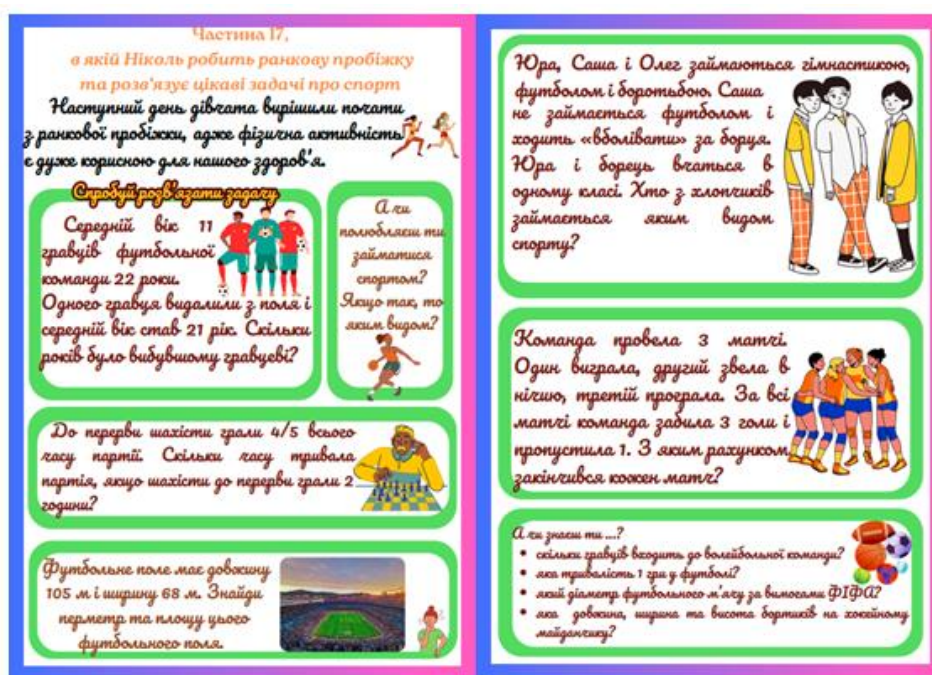 Частина 17,
в якій Ніколь робить ранкову пробіжку
та розв'язує цікаві задачі про спорт
Наступний день дівчата вирішили почати
з ранкової пробіжки, адже фізична активність
є дуже корисною для нашого здоров'я.
Спробуй розв'язати задачу
Середній вік 11
гравців футбольної
команди 22 роки.
Одного гравця видалили з поля і
середній вік став 21 рік. Скільки
років було вибувшому гравцеві?
А чи
полюбляєш ти
займатися
спортом?
Якщо так, то
яким видом?
До перерви шахісти грали 4/5 всього
часу партії. Скільки часу тривала
партія, якщо шахісти до перерви грали 2
години?
Футбольне поле має довжину
105 м і ширину 68 м. Знайди
перметр та площу цього
футбольного поля.
Юра, Саша і Олег займаються гімнастикою,
футболом і боротьбою. Саша
не займається футболом і
ходить «вболівати» за борця.
Юра і борець вчаться в
одному класі. Хто з хлопчиків
займається яким видом
спорту?
Команда провела 3 матчі.
Один виграла, другий звела в
нічию, третій програла. За всі
матчі команда забила 3 голи і
пропустила 1. З яким рахунком
закінчився кожен матч?
А чи знаєш ти ...?
• скільки гравців входить до волейбольної команди?
• яка тривалість 1 гри у футболі?
• який діаметр футбольного м'ячу за вимогами ФІФА?
• яка довжина, ширина та висота бортиків на хокейному
майданчику?